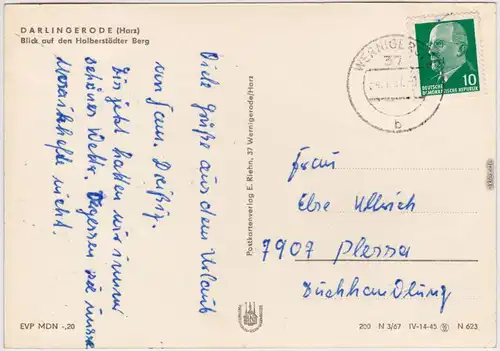 DARLINGERODE (Harz)
Blick auf den Halberstädter Berg
Viele Grüße aus dem Urlaub
von Fam. Dreißig.
Bis jetzt hatten wir immer
schönes Wetter. Vergessen sie unsre
nicht.
EVP MDN -,20
Postkartenverlag E. Riehn, 37 Wernigerode/Harz
WERNIGERODE
37
b
10
DEUTSCHE
DEMOKRATISCHE REPUBLIK
Frau
Else Ullrich
7907 Plessa
Buchhandlung
200 N 3/67 IV-14-45 N 623